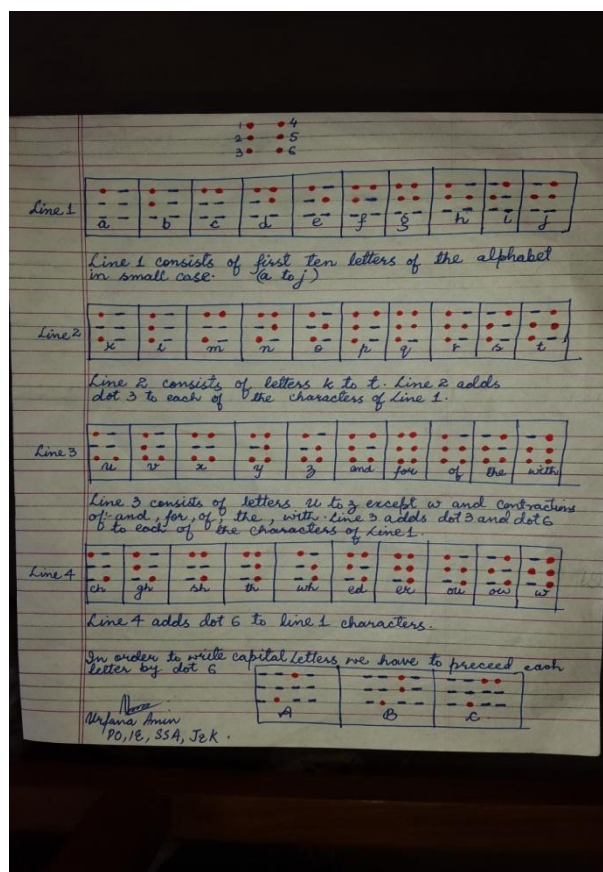 1 4
2 5
3 6
Line 1
a b c d e f g h i j
Line 1 consists of first ten letters of the alphabet
in small case. (a to j)
Line 2
k l m n o p q r s t
Line 2 consists of letters k to t. Line 2 adds
dot 3 to each of the characters of Line 1.
Line 3
u v x y z and for of the with
Line 3 consists of letters u to z except w and contractions
of and, for, of, the, with. Line 3 adds dot 3 and dot 6
to each of the characters of Line 1.
Line 4
ch gh sh th wh ed er ou ow w
Line 4 adds dot 6 to line 1 characters.
In order to write capital letters we have to preceed each
letter by dot 6
A B C
Urfana Amin
PO, IE, SSA, J&K.